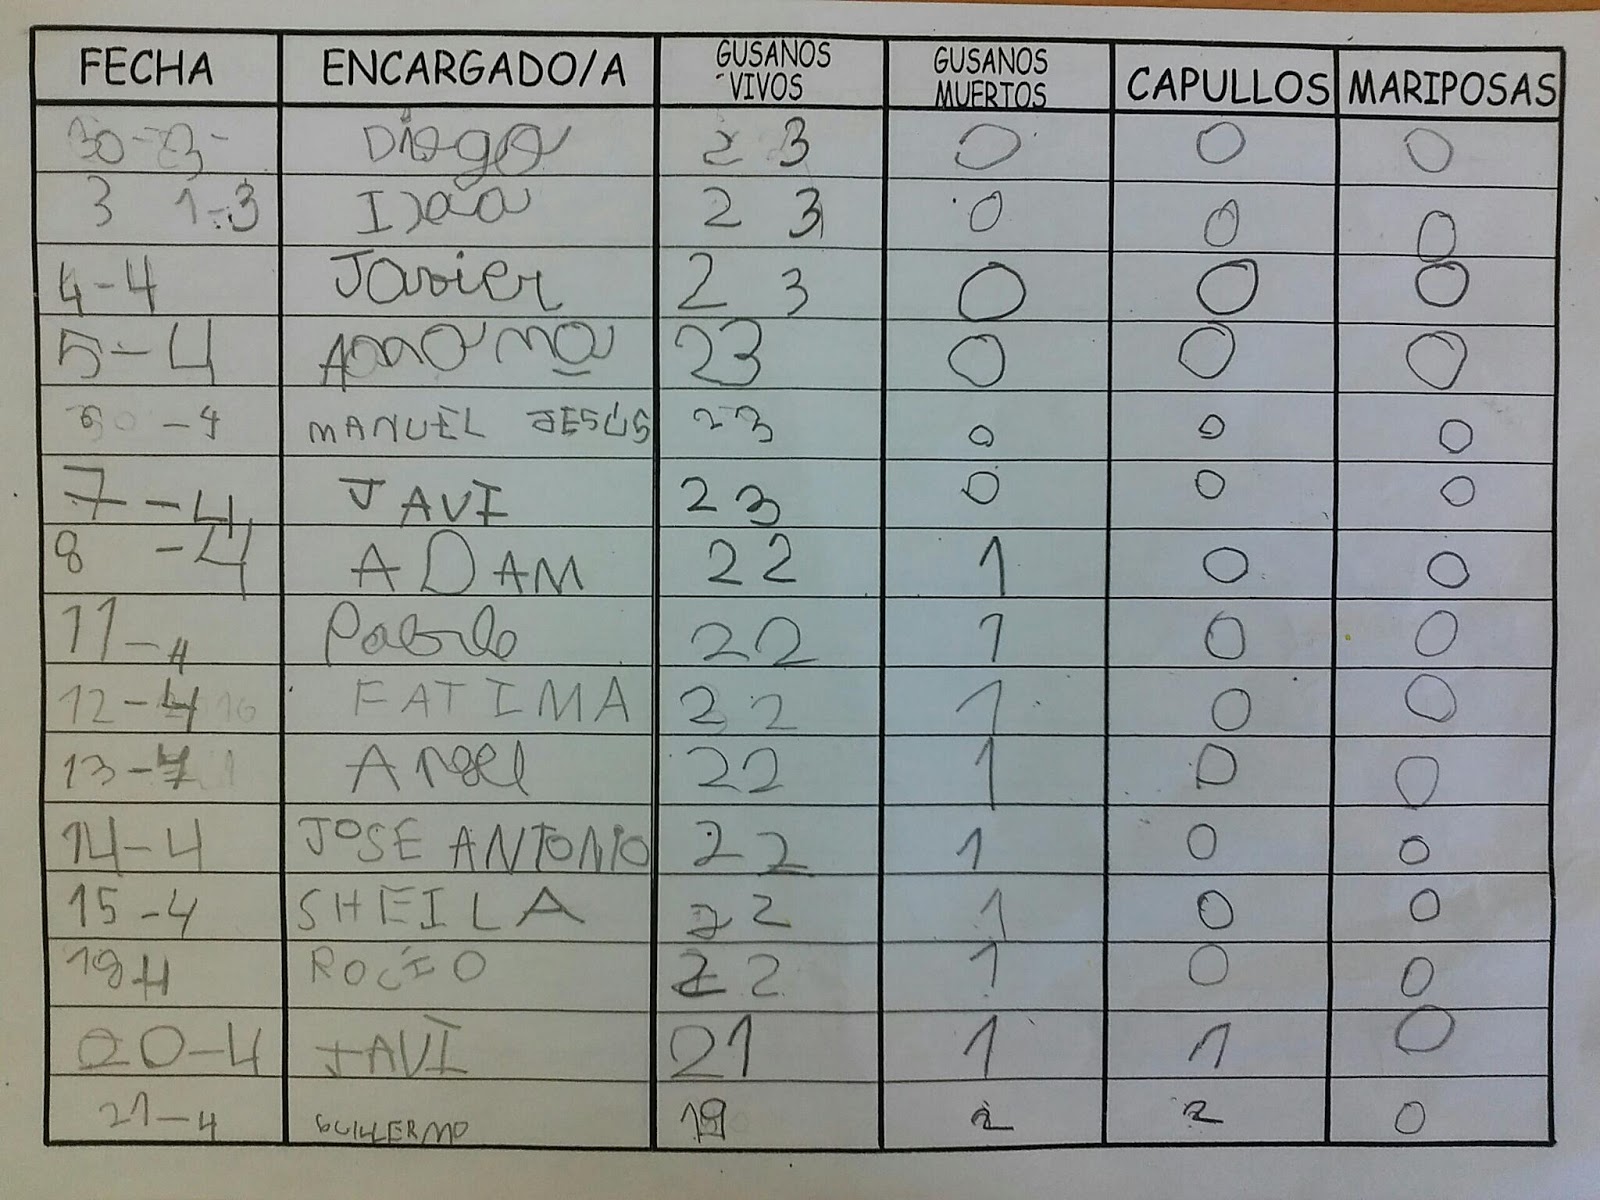 FECHA ENCARGADO/A GUSANOS VIVOS GUSANOS MUERTOS CAPULLOS MARIPOSAS
30-3- Diego 2 3 0 0 0
3 1-3 2 3 0 0 0
4-4 Javier 2 3 0 0 0
5-4 23 0 0 0
6 -4 MANUEL JESÚS 23 0 0 0
7-4 JAVI 23 0 0 0
8 -4 ADAM 22 1 0 0
11-4 Pablo 22 1 0 0
12-4 FATIMA 22 1 0 0
13-4 Angel 22 1 0 0
14-4 JOSE ANTONIO 22 1 0 0
15-4 SHEILA 22 1 0 0
19 4 ROCÍO 22 1 0 0
20-4 JAVI 21 1 1 0
21-4 GUILLERMO 19 2 2 0